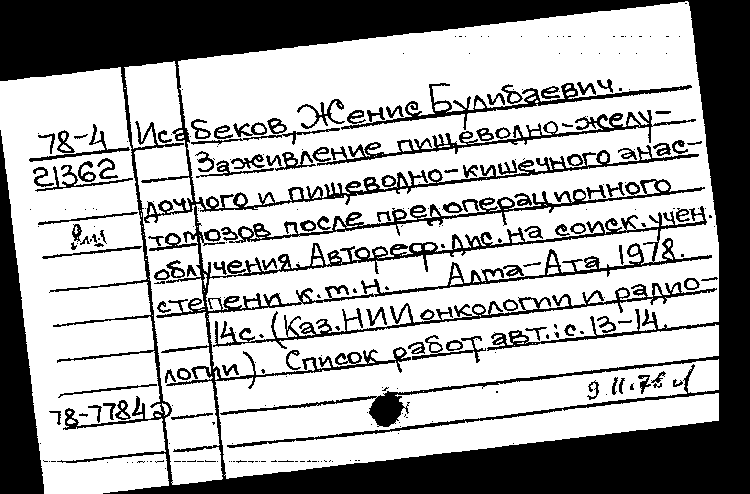 78-4 Исабеков, Женис Булибаевич.
21362 Заживление пищеводно-желу-
дочного и пищеводно-кишечного анас-
томозов после предоперационного
облучения. Автореф. дис. на соиск. учен.
степени к.т.н. Алма-Ата, 1978.
14с. (Каз. НИИ онкологии и радио-
логии). Список работ авт.: с. 13-14.
78-77842
9 11.78